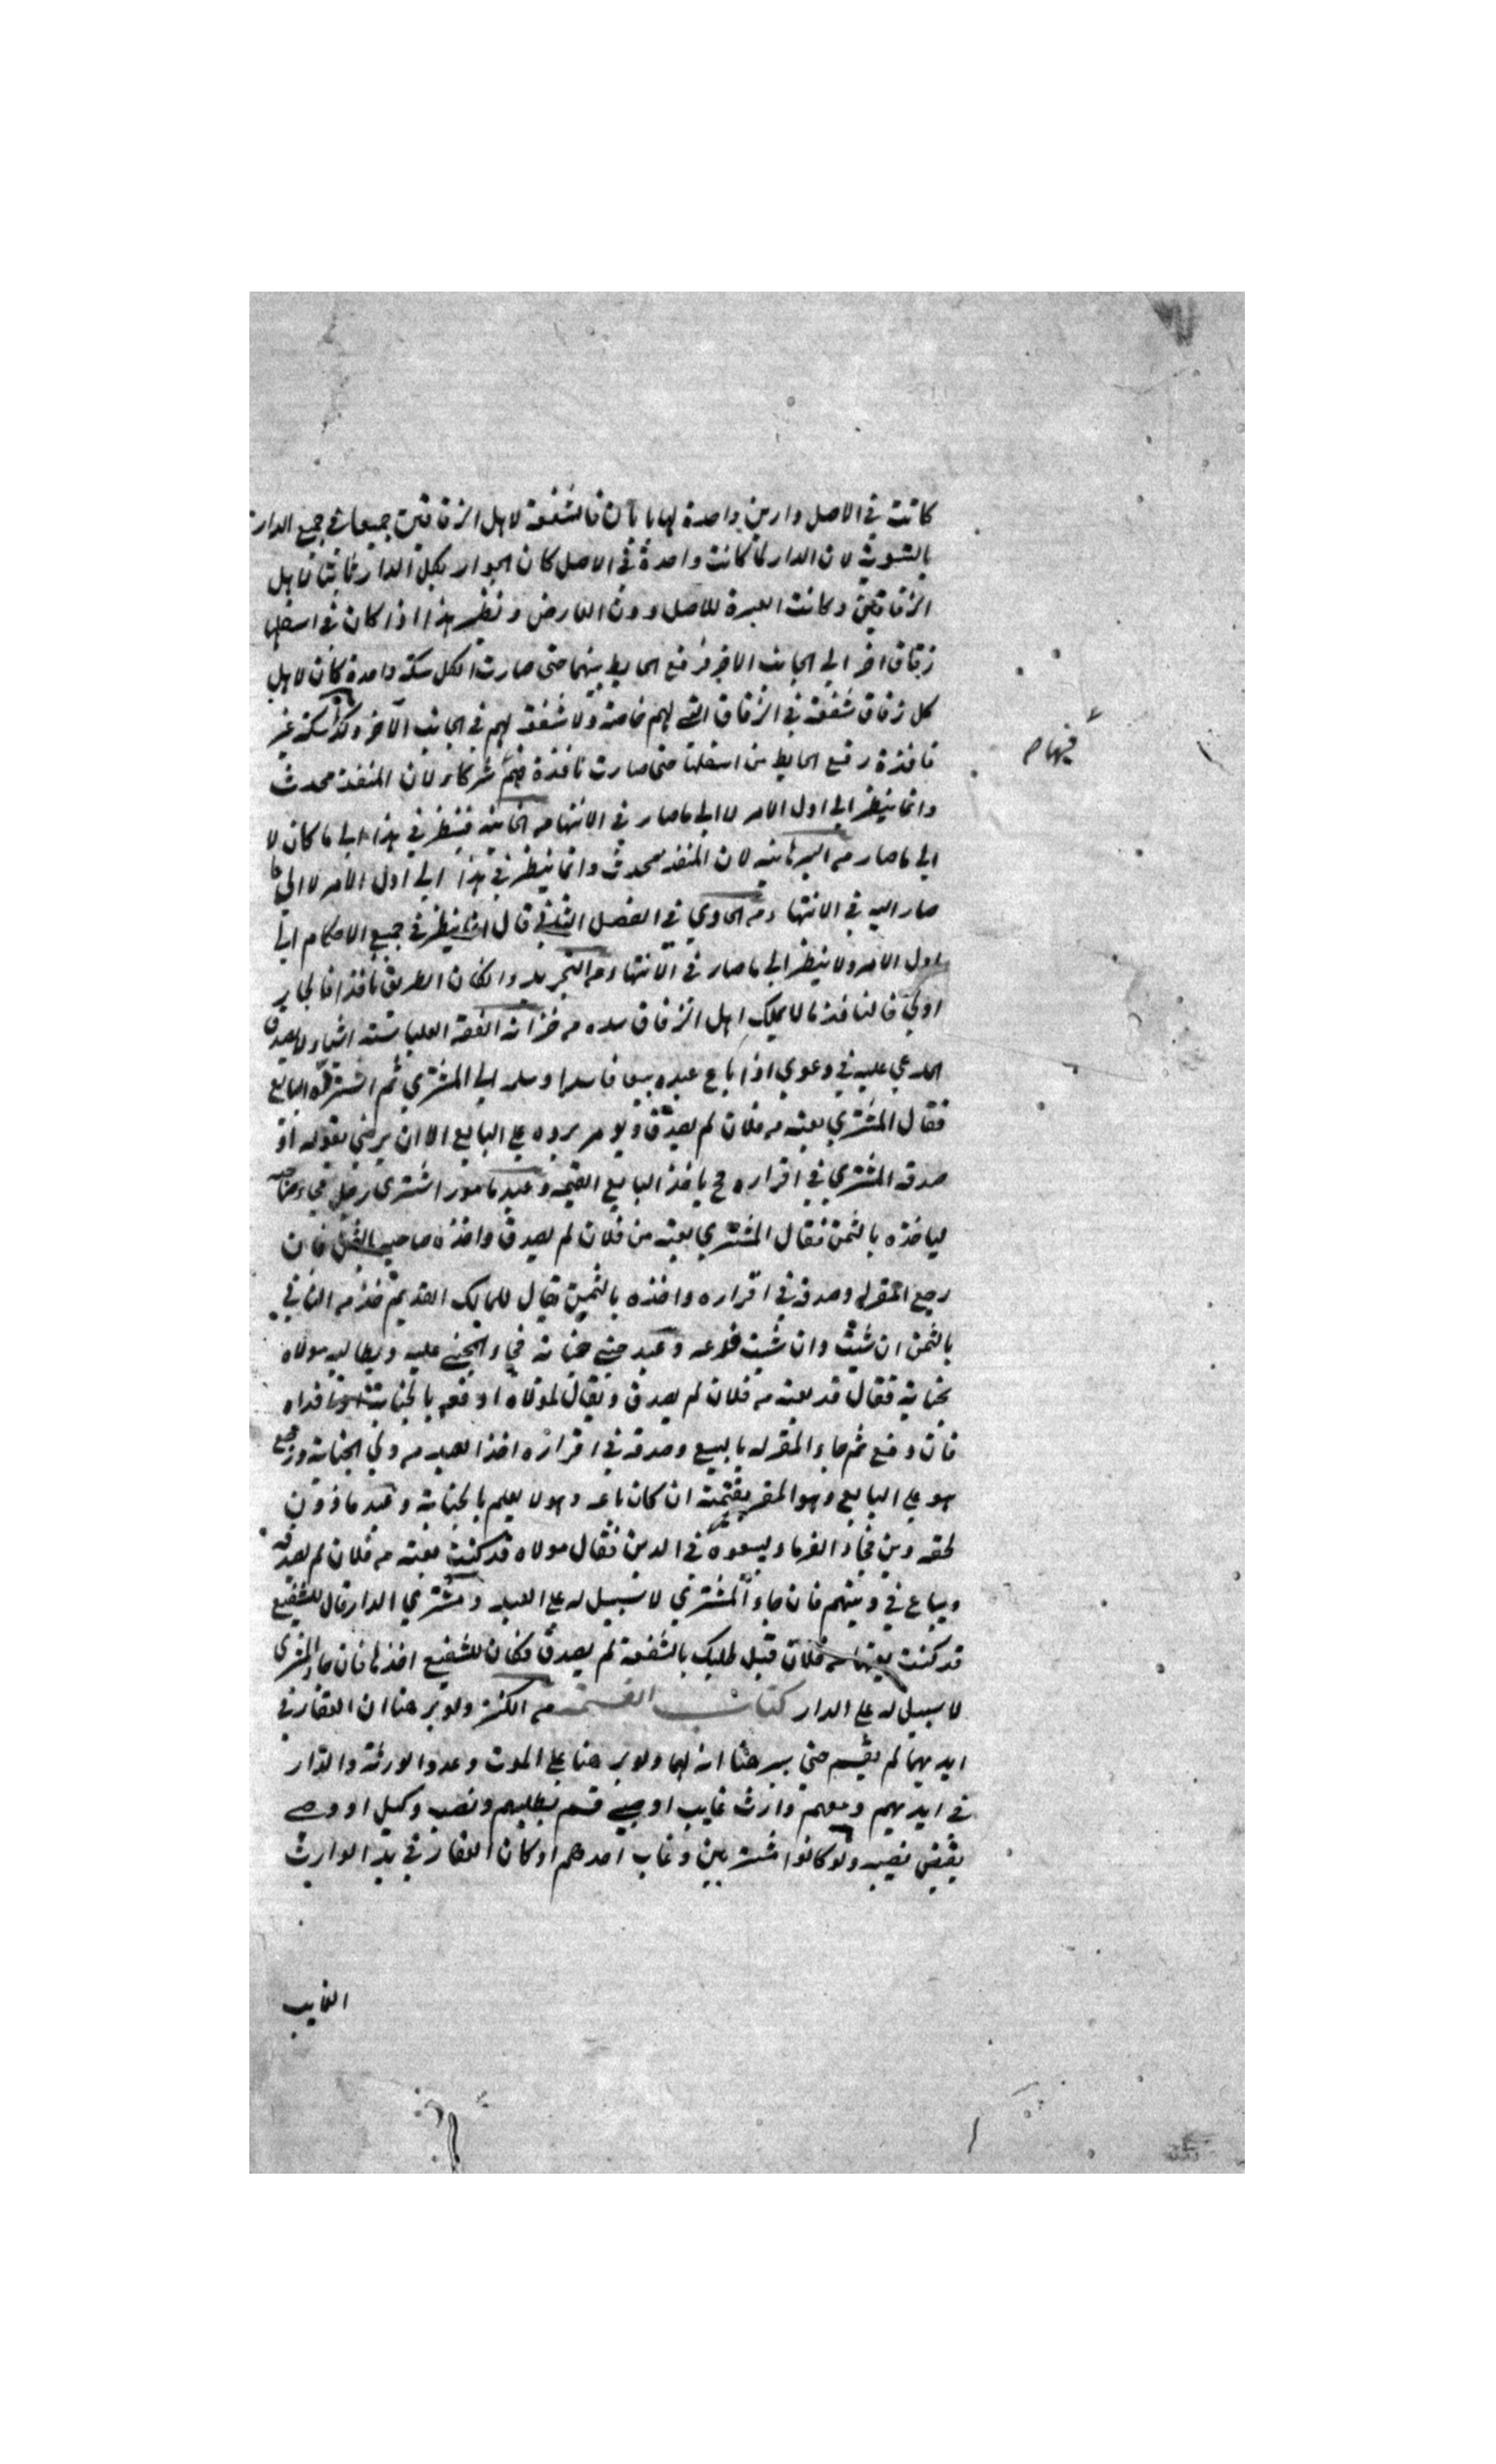 كانت في الاصل دارين واحدة لها بابان فالشفعة لاهل الزقاقين جميعا في جميع الدار
بالسوية لان الدار لما كانت واحدة في الاصل كان الجوار بكل الدار ثابتا لاهل
الزقاقين وكانت العبرة للاصل دون العارض ونظير هذا اذا كان في اسفلها
زقاق اخر الي الجانب الاخر فرفع الحايط بينهما حتي صارت الكل سكة واحدة كان لاهل
كل زقاق شفعة في الزقاق التي لهم خاصة ولا شفعة لهم في الجانب الاخر وكذا سكة غير
نافذة رفع الحايط من اسفلها حتي صارت نافذة فهم شركاء لان المنفذ محدث
وانما ينظر الي اول الامر لا الي ما صار في الانتها من الخانية فينظر في هذا الي ما كان لا
الي ما صار من لان المنفذ محدث وانما ينظر في هذا الي اول الامر لا الي ما
صار اليه في الانتهاء من الحاوي في الفصل الثاني قال انما ينظر في جميع الاحكام الي
اول الامر ولا ينظر الي ما صار في الانتهاء من التجريد وان كان الطريق نافذا فالجار
اولي فالنافذ ما لا يملك اهل الزقاق سده من خزانة الفقه العليا ستة اشياء لا يصدق
المدعي عليه في دعوي اذا باع عبده بيعا فاسدا وسلمه الي المشتري ثم استرده البايع
فقال المشتري بعته من فلان لم يصدق ويومر برده علي البايع الا ان يرضي بقوله او
صدقه المشتري في اقراره ح ياخذ البايع القيمة وعبد ماسور اشتري رجل فجاء صاحبه
لياخذه بالثمن فقال المشتري بعته من فلان لم يصدق واخذه صاحبه بالثمن فان
رجع المقر له وصدقه في اقراره واخذه بالثمن يقال للمالك القديم خذ من الثاني
بالثمن ان شيت وان شيت فدعه وعبد جني جناية فجاء المجني عليه ويطالبه مولاه
بجناية فقال قد بعته من فلان لم يصدق ويقال لمولاه ادفعه بالجناية او افداه
فان دفع ثم جاء المقر له بالبيع وصدقه في اقراره اخذ العبد من ولي الجناية ورجع
هو علي البايع وهو المقر بقيمته ان كان باعه وهو لا يعلم بالجناية وعبد ماذون
لحقه دين فجاء الغرماء ليبيعوه في الدين فقال مولاه قد كنت بعته من فلان لم يصدقه
ويباع في دينهم فان جاء المشتري لا سبيل له علي العبد ومشتري الدار قال للشفيع
قد كنت بعتها من فلان قبل طلبك بالشفعة لم يصدق وكان للشفيع اخذها فان جاء المشتري
لا سبيل له علي الدار كتاب القسمة من الكنز ولو برهنا ان العقار في
ايديهما لم يقسم حتي يبرهنا انه لهما ولو برهنا علي الموت وعدد الورثة والدار
في ايديهم ومعهم وارث غايب او صبي قسم بطلبهم ونصب وكيل او وصي
يقبض نصيبه ولو كانوا مشترين وغاب احدهم او كان العقار في يد الوارث
الغايب